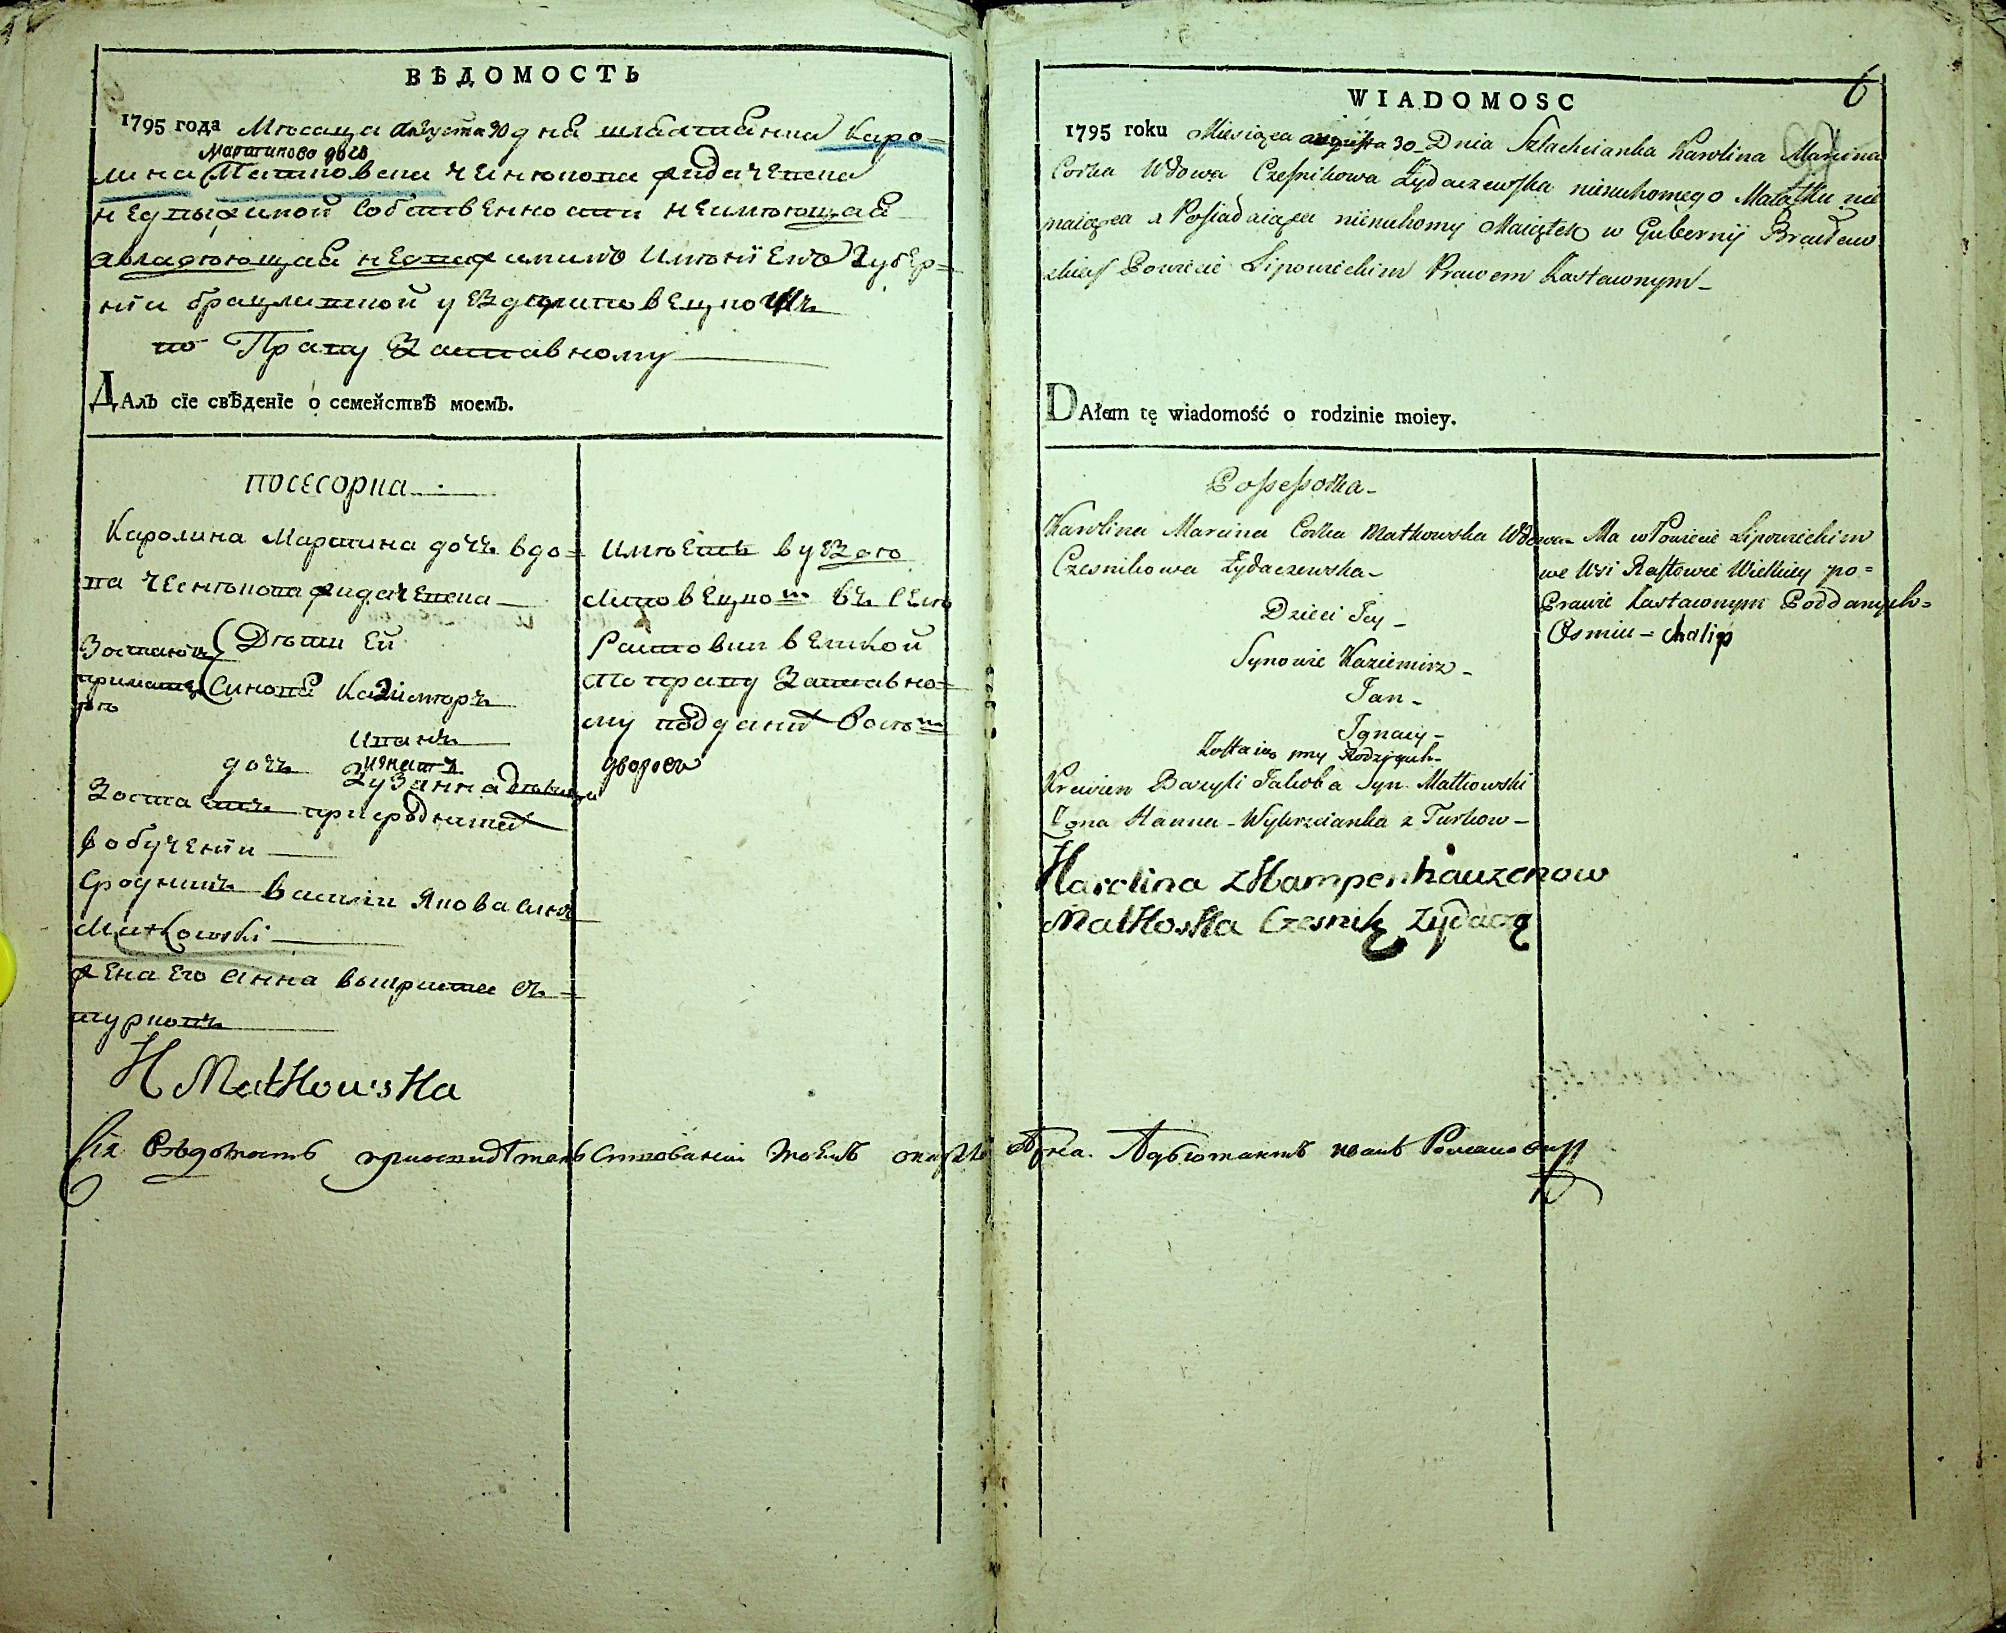 ВѢДОМОСТЬ
1795 года Мѣсяца августа 30 дня шляхтянка Каро=
Мартинова дочь
лина Матковска чесникова жидачевска
недвижимой собственности неимеющая
а владеющая недвижимимъ имѣниемъ Губер=
нии брацлавской уезда липовецкого
по Праву Заставному
ДАлъ сїе свѢденїе о семействѢ моемъ.
посесорка
Каролина Мартина дочъ вдо=
ва чесникова жидачевска
Дѣти Ей
Синови Казимѣръ
Иванъ
Игнатъ
дочъ Зузанна
Зостаетъ при родителях
в обучении
Сродникъ василий Якова синъ
Matkowski
жена его анна
H Matkowska
имѣетъ в уезде
липовецком въ селе
Растовки великой
по праву Заставно=
му подданих восем
дворов
Сія Вѣдомость
WIADOMOSC
6
1795 roku Miesiąca augusta 30 Dnia Szlachcianka Karolina Marcina
Corka Wdowa Czesnikowa Zydaczewska nieruchomego Maiątku nie
maiąca a Posiadaiąca nieruchomy Maiątek w Gubernij Bracław
skiey Powiecie Lipowieckim Prawem Zastawnym
DAłam tę wiadomość o rodzinie moiey.
Possessorka
Karolina Marcina Corka Matkowska Wdowa
Czesnikowa Zydaczewska
Dzieci Jey
Synowie Kazimirz
Jan
Ignacy
Zostaią przy Rodzicach
Krewien Bazyli Jakoba Syn Matkowski
Żona Hanna
Ma w Powiecie Lipowieckim
we Wsi Rastowce Wielkiey po=
Prawie Zastawnym Poddanych
Osmiu chalip
Karolina z Kampenhauzenow
Matkoska Czesnik Zydacz